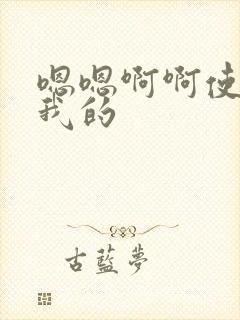 嗯嗯啊啊使
我的
古蓝梦